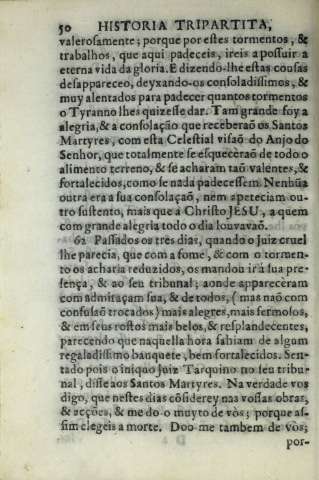 50 HISTORIA TRIPARTITA,
valerosamente; porque por estes tormentos, &
trabalhos, que aqui padeceis, ireis a possuir a
eterna vida da gloria. E dizendo-lhe estas cousas
desappareceo, deyxando-os consoladissimos, &
muy alentados para padecer quantos tormentos
o Tyranno lhes quizesse dar. Tam grande foy a
alegria, & a consolação que receberaõ os Santos
Martyres, com esta Celestial visaõ do Anjo do
Senhor, que totalmente se esquecèraõ de todo o
alimento terreno, & se acharam taõ valentes, &
fortalecidos, como se nada padecessem. Nenhũa
outra era a sua consolaçaõ, nem apeteciam ou-
tro sustento, mais que a Christo JESU, a quem
com grande alegria todo o dia louvavaõ.
62 Passados os tres dias, quando o Juiz cruel
lhe parecia, que com a fome, & com o tormen-
to os acharia reduzidos, os mandou ir á sua pre-
sença, & ao seu tribunal; aonde apparecèram
com admiraçam sua, & de todos, (mas naõ com
confusaõ trocados) mais alegres, mais fermosos,
& em seus rostos mais belos, & resplandecentes,
parecendo que naquella hora sahiam de algum
regaladissimo banquete, bem fortalecidos. Sen-
tado pois o iniquo Juiz Tarquino no seu tribu-
nal, disse aos Santos Martyres. Na verdade vos
digo, que nestes dias cõsiderey nas vossas obras,
& acções, & me do-o muyto de vòs; porque as-
sim elegeis a morte. Doo-me tambem de vòs;
por-